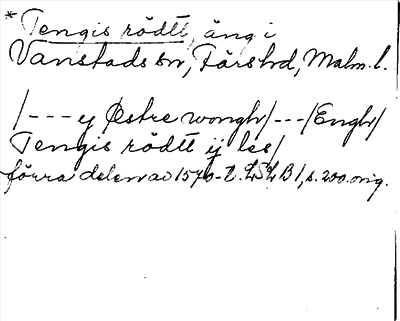 * Tengis rödtt, äng i
Vanstads sn, Färs hd, Malm. l.
/--- ij Østre wongh/---/Engh/
Tengis rödtt ij les/
förra delen av 1570-t. LSLB 1, s. 200. orig.